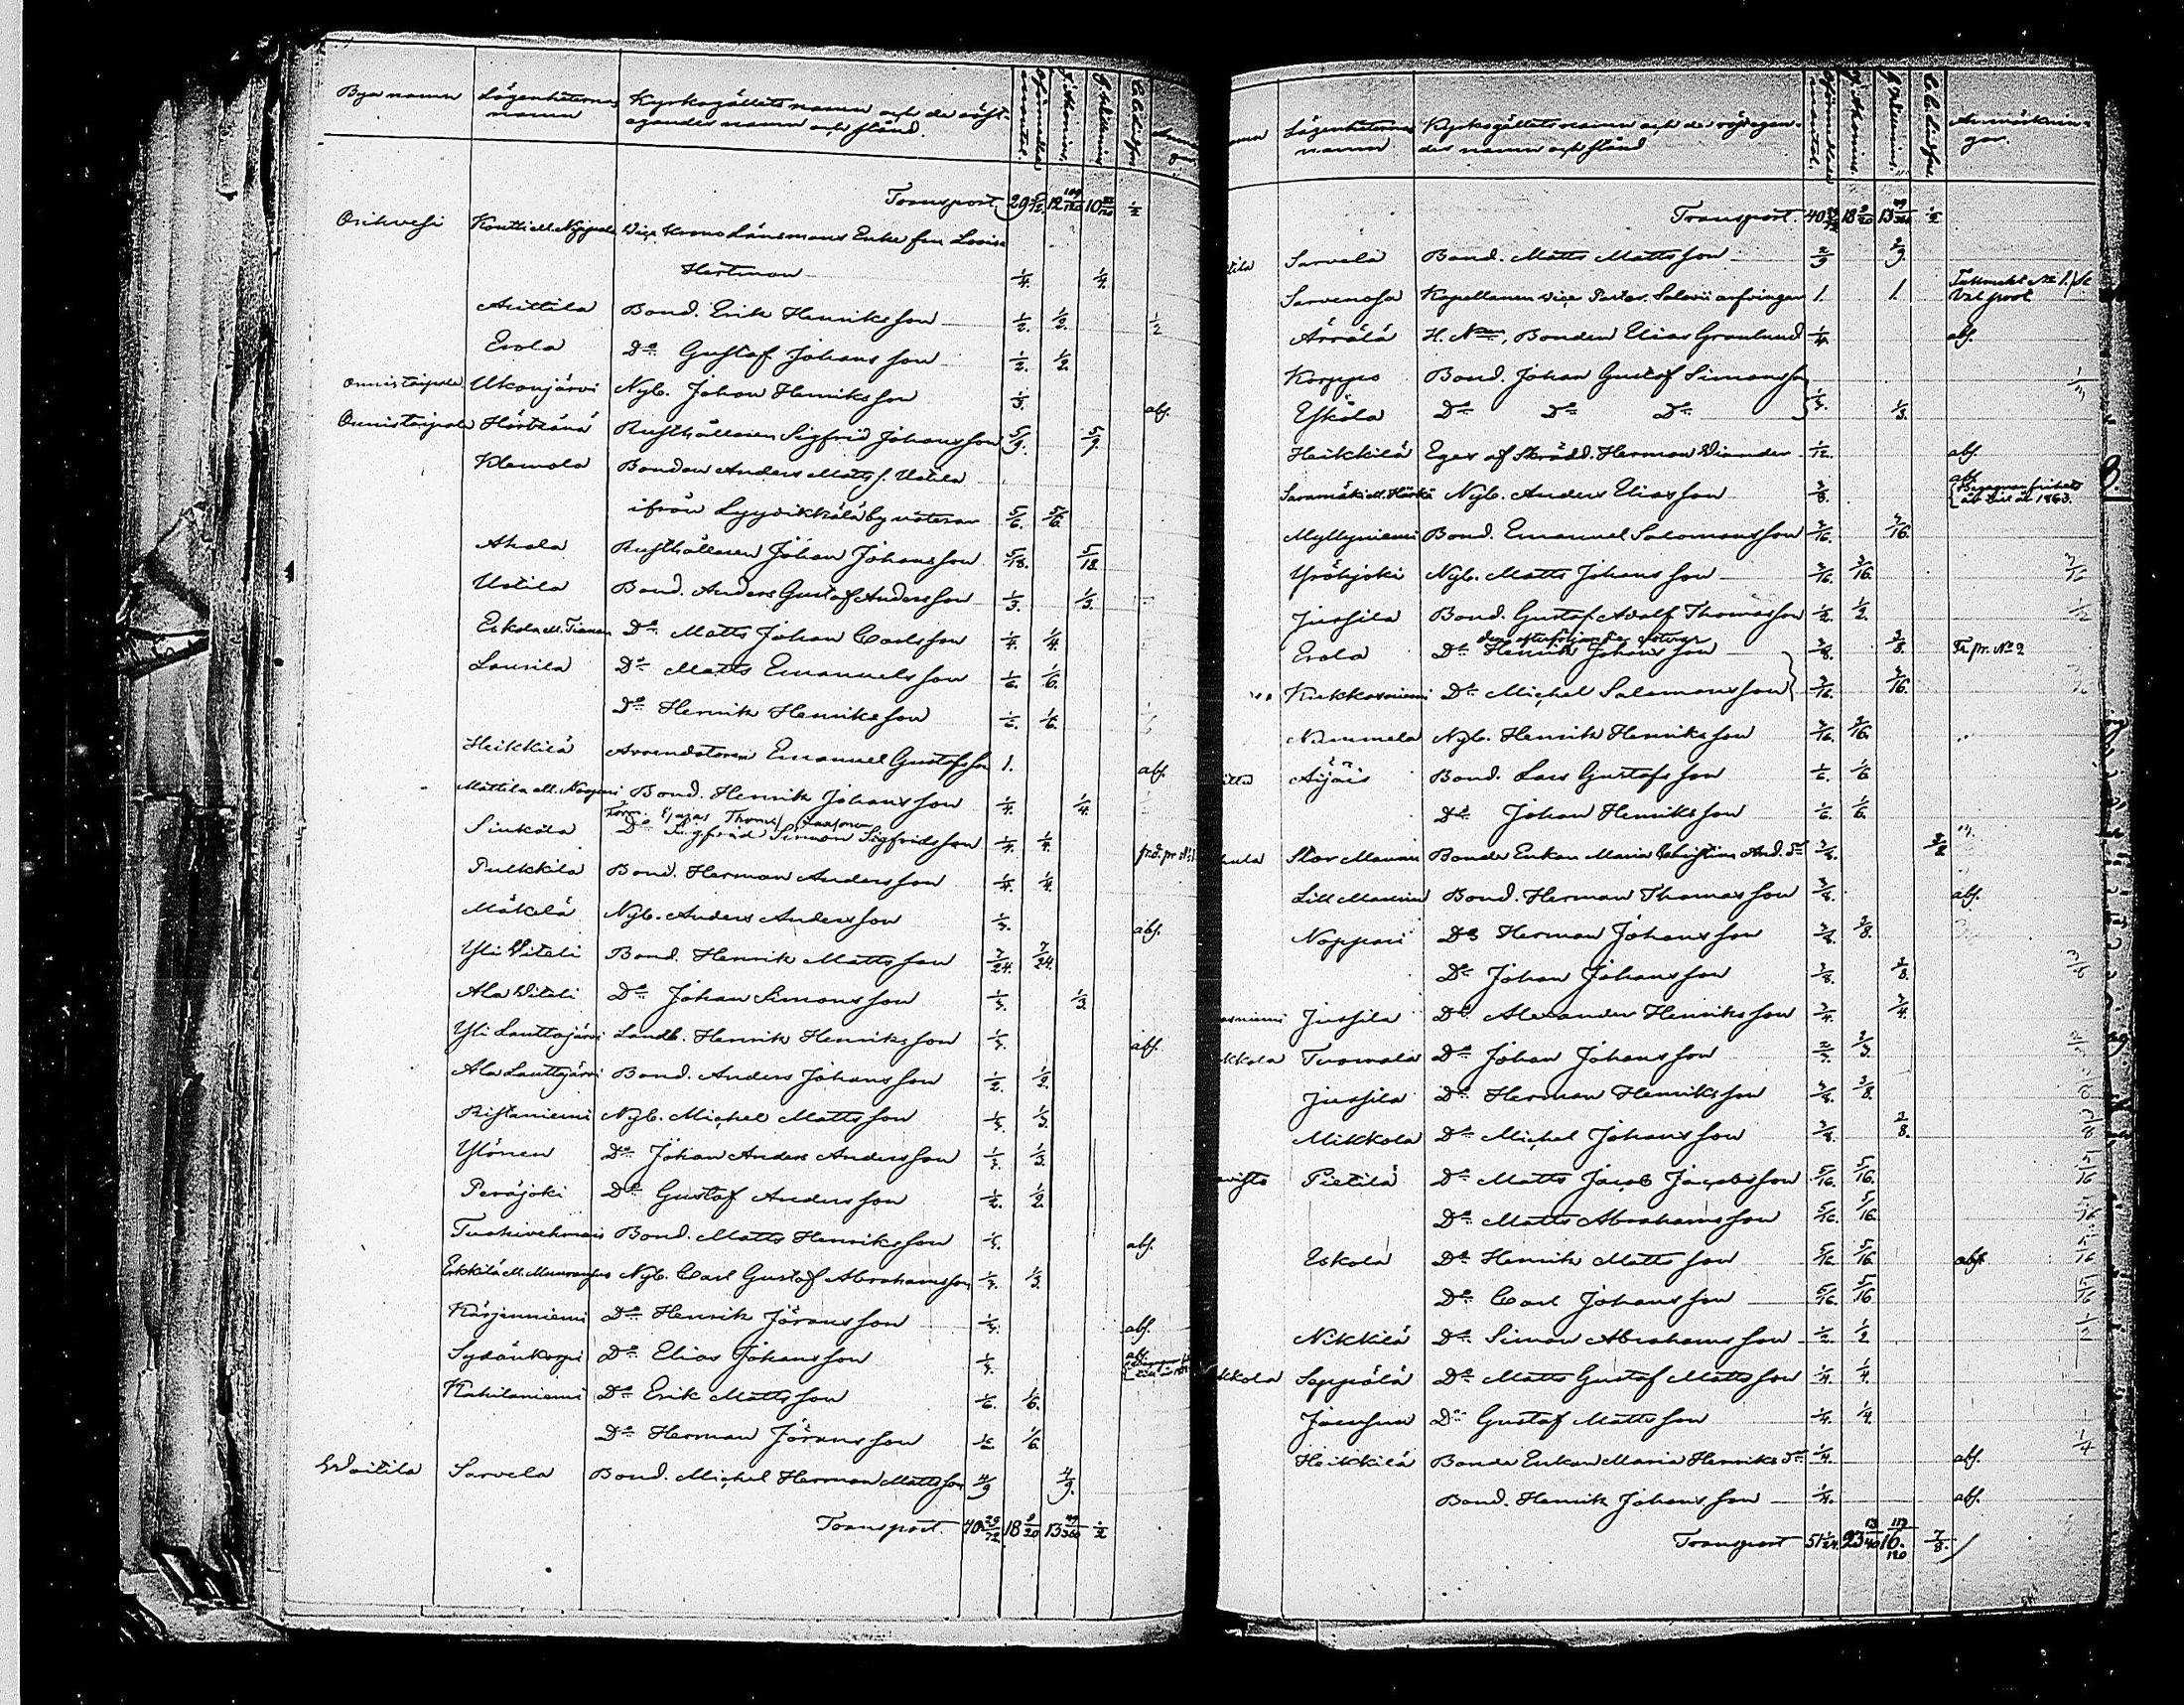 Bya namn Lägenheternas namn Kyrkogällets namn och de röstegandes namn och stånd
Transport 29 5/12 10 1/2
Orihvesi Koutti ell. Vice Krono Länsmans Enka fru Lovisa
Hertman 1/4. 1/4.
Anttila Bond. Erik Henriksson 1/2. 1/2. 1/2
Erola Do Gustaf Johansson 1/2. 1/2.
Onnistaipale Ukonjärvi Nyb. Johan Henriksson 1/3. abs.
Onnistaipale Rusthållaren Sigfrid Johansson 5/9. 5/9.
Klemola Bonden Anders Matts s. Uotila
ifrån Lyydikkälä by röstar 5/6. 5/6.
Ahola Rusthållaren Johan Johansson 5/18. 5/18
Uotila Bond. Anders Gustaf Andersson 1/3. 1/3.
Eskola ell. Do Matts Johan Carlsson 1/4. 1/4.
Laurila Do Matts Emanuelsson 1/6. 1/6.
Do Henrik Henriksson 1/6. 1/6.
Heikkilä Arrendatoren Emanuel Gustafsson 1. abs.
Mattila ell. Bond. Henrik Johansson 1/4. 1/4.
Sinkola Do Sigfrid Simon Sigfridsson 1/4. 1/4.
Pulkkila Bond. Herman Andersson 1/4. 1/4.
Mäkelä Nyb. Anders Andersson 1/3. abs.
Yli Viteli Bond. Henrik Mattsson 7/24. 7/24.
Ala Viteli Do Johan Simonsson 1/3. 1/3.
Yli Lauttajärvi Landb. Henrik Henriksson 1/3. abs.
Ala Lauttajärvi Bond. Anders Johansson 1/2. 1/2.
Ristaniemi Nyb. Michel Mattsson 1/3. 1/3.
Ylönen Do Johan Anders Andersson 1/3. 1/3.
Peräjoki Do Gustaf Andersson 1/2. 1/2.
Bond. Matts Henriksson 1/3. abs.
Erkkilä ell. Nyb. Carl Gustaf Abrahamsson 1/3. 1/3.
Kärjenniemi Do Henrik Göransson 1/3. abs.
Sydänkorpi Do Elias Johansson 1/3. abs.
Kahilaniemi Do Erik Mattsson 1/6. 1/6.
Do Herman Göransson 1/6. 1/6.
Woitila Sarvela Bond. Michel Herman Mattsson 4/9 4/9.
Transport. 40 29/72 18 9/20 13 49/360 1/2
Lägenheternas namn Kyrkogällets namn och de röstegandes namn och stånd Anmärkningar.
Transport. 40 29/72 18 9/20 13 49/360 1/2
Sarvela Bond. Matts Mattsson 2/9 2/9.
Sarvenoja Kapellanen vice Pastor Salovii arfvingar 1. 1.
Ärrälä Bonden Elias Granlund 1/4. abs.
Korppo Bond. Johan Gustaf Simonsson
Eskola Do Do Do 1/3. 1/3.
Heikkilä Eges af Skrädd. Herman Viander 1/12. abs.
Nyb. Anders Eliasson 3/8. abs. Begagnar frihets år till år 1863.
Myllyniemi Bond. Emanuel Salomonsson 3/16. 3/16.
Yröhjoki Nyb. Matts Johansson 3/16. 3/16. 3/16
Jussila Bond. Gustaf Adolf Thomasson 1/2. 1/2. 1/2
den efterföljande röstar
Erola Do Henrik Johansson 3/8. 3/8. Fr. pr. No 2
Kukkasniemi Do Michel Salomonsson 3/16. 3/16.
Nummela Nyb. Henrik Henriksson 3/16. 3/16.
Äijäis Bond. Lars Gustafsson 1/6. 1/6
Do Johan Henriksson 1/6. 1/6.
Stor Maunu Bonde Enkan Maria Christina And. Dr 3/8. 3/8
Lill Maunu Bond. Herman Thomasson 3/8. abs.
Noppari Do Herman Johansson 3/8. 3/8.
Do Johan Johansson 3/8. 3/8. 3/8
Jussila Do Alexander Henriksson 3/4. 3/4.
Tuomala Do Johan Johansson 2/3. 2/3.
Jussila Do Herman Henriksson 3/8. 3/8.
Mikkola Do Michel Johansson 3/8. 3/8.
Pietilä Do Matts Jacob Jacobsson 5/16. 5/16. 5/16
Do Matts Abrahamsson 5/16. 5/16. 5/16
Eskola Do Henrik Mattsson 5/16. 5/16 abs. 5/16
Do Carl Johansson 5/16. 5/16 5/16
Nikkilä Do Simon Abrahamsson 1/2. 1/2. 1/2
Seppälä Do Matts Gustaf Mattsson 1/4. 1/4.
Do Gustaf Mattsson 1/4. 1/4.
Heikkilä Bonde Enkan Maria Henriks Dr 1/4. abs. 1/4
Bond. Henrik Johansson 1/4. abs.
Transport 51 1/24. 23 13/40 16 117/120 7/8.